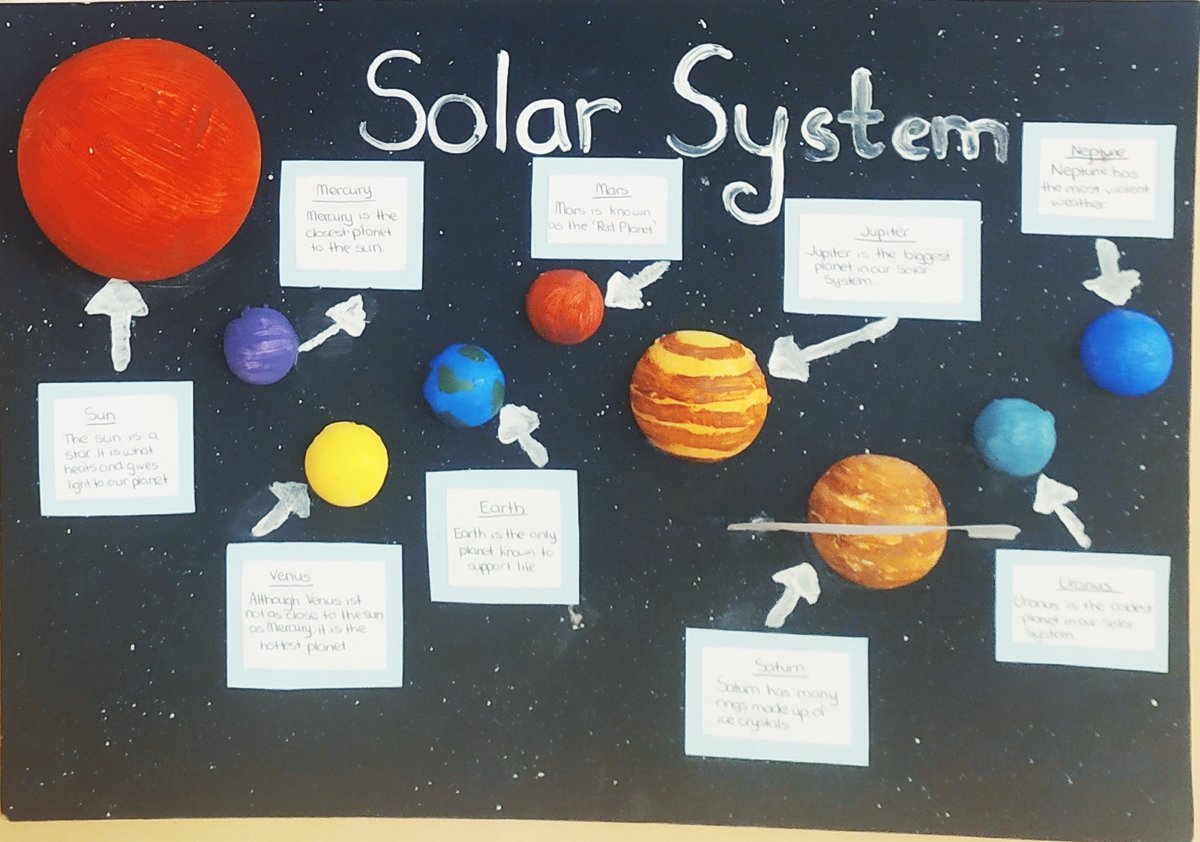 Solar System
Sun
The sun is a
star. It is what
heats and gives
light to our planet
Mercury
Mercury is the
closest planet
to the sun.
Venus
Although Venus ist
not as close to the sun
as Mercury, it is the
hottest planet
Earth
Earth is the only
planet known to
support life.
Mars
Mars is known
as the 'Red Planet'.
Jupiter
Jupiter is the biggest
planet in our Solar
System.
Saturn
Saturn has many
rings made up of
ice crystals.
Uranus
Uranus is the coldest
planet in our Solar
System
Neptune
Neptune has
the most violent
weather